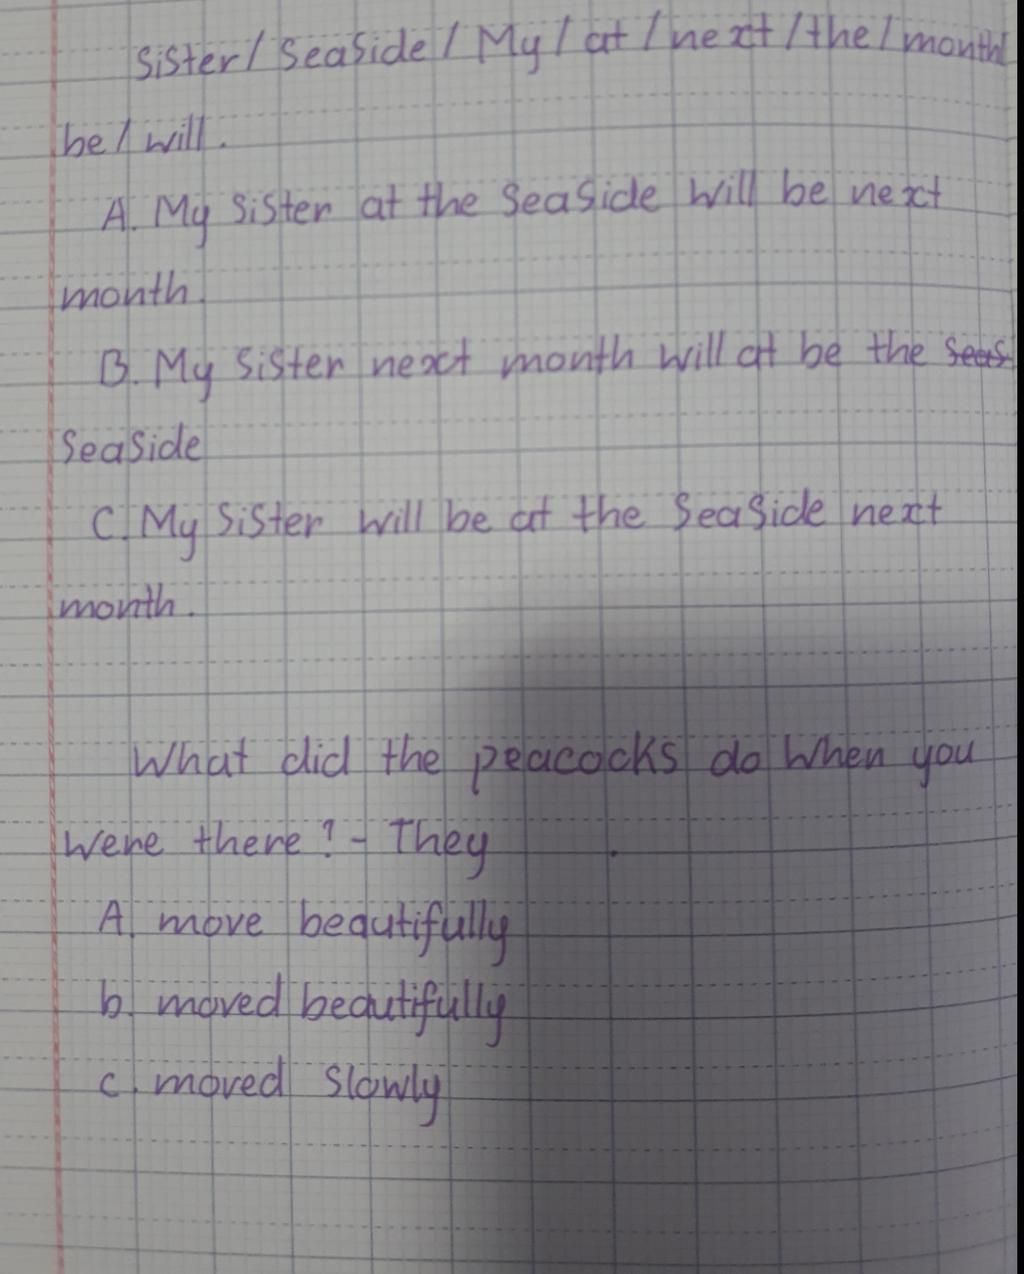 Sister/ Seaside/ My/ at/ next/the/month
be/ will.
A. My Sister at the Seaside will be next
month.
B. My Sister next month will at be the
Seaside
C. My Sister will be at the Seaside next
month.
What did the peacocks do When you
were there? - They .
A. move beautifully
b. moved beautifully
c. moved Slowly